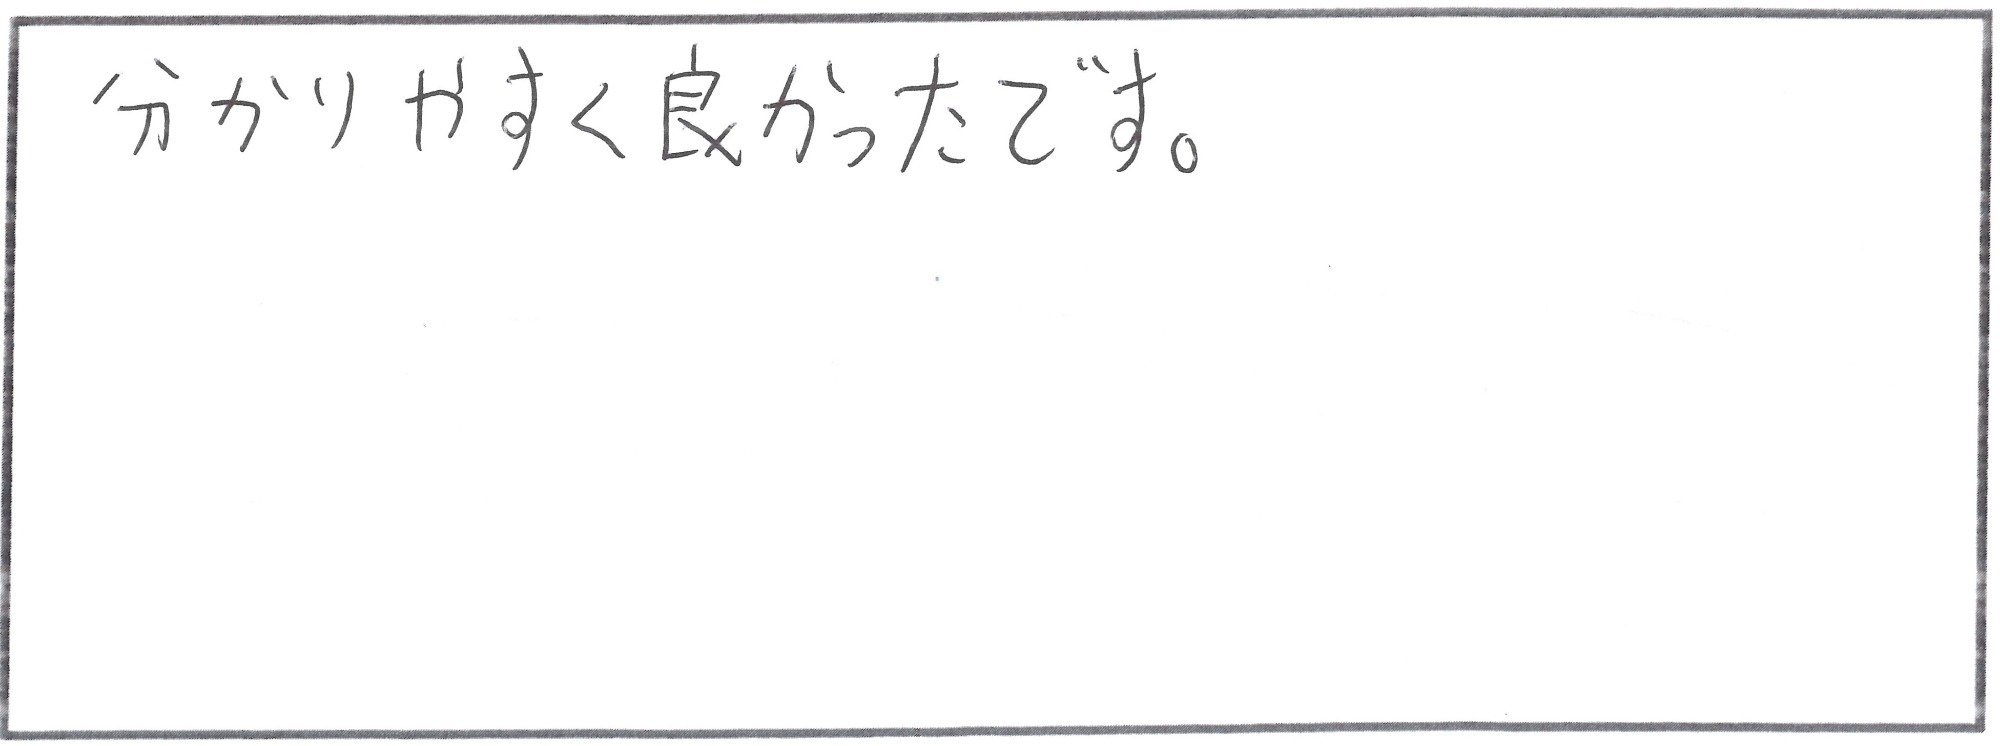 分かりやすく良かったです。